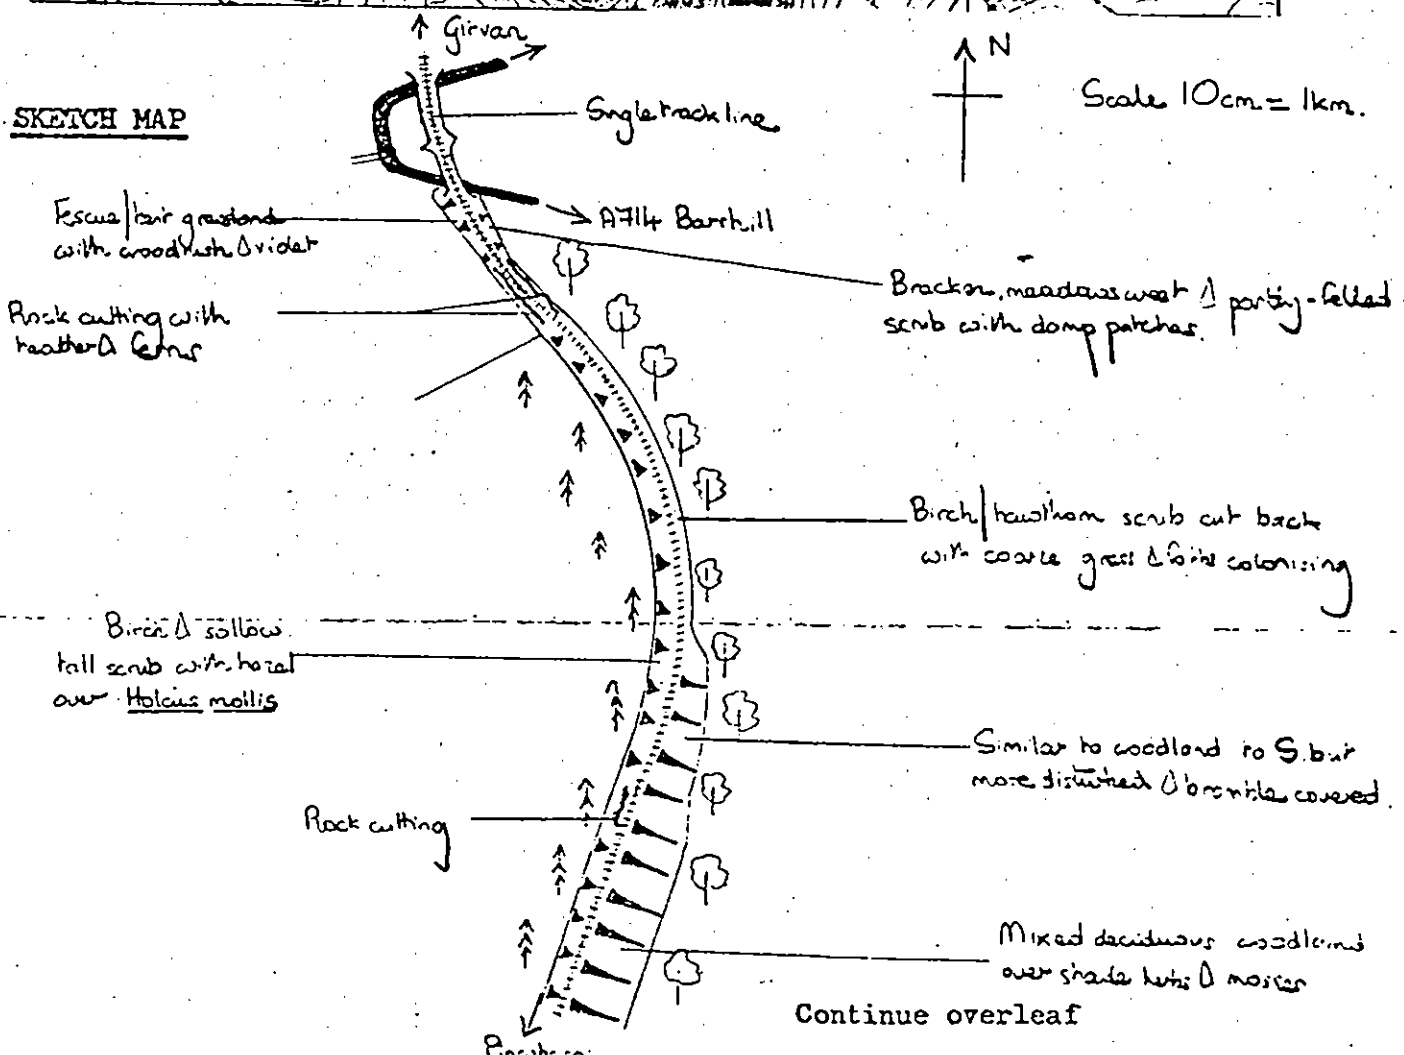 Girvan
N
Scale 10cm = 1km.
SKETCH MAP
Single track line
Fescue/hair grassland
with woodrush & violet
A714 Barrhill
Bracken, meadowsweet & partly-felled
scrub with damp patches.
Rock cutting with
heather & ferns
Birch/hawthorn scrub cut back
with coarse grass & forbs colonising
Birch & sallow
tall scrub with hazel
over Holcus mollis
Similar to woodland to S. but
more disturbed & bramble covered.
Rock cutting
Mixed deciduous woodland
over shade herbs & mosses
Continue overleaf